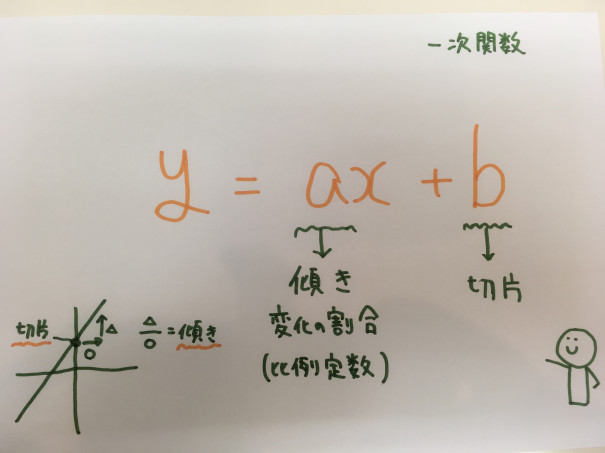 一次関数
y = ax + b
傾き
変化の割合
(比例定数)
切片
切片
△
○
△/○ = 傾き